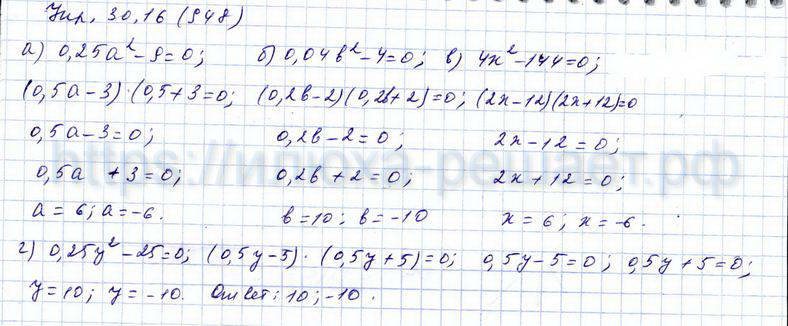 Упр. 30.16 (948)
а) 0,25a² - 9 = 0; б) 0,04b² - 4 = 0; в) 4x² - 144 = 0;
(0,5a - 3)·(0,5 + 3 = 0; (0,2b - 2)(0,2b + 2) = 0; (2x - 12)(2x + 12) = 0
0,5a - 3 = 0; 0,2b - 2 = 0; 2x - 12 = 0;
0,5a + 3 = 0; 0,2b + 2 = 0; 2x + 12 = 0;
https://илюха-решает.рф
a = 6; a = -6. b = 10; b = -10 x = 6; x = -6.
г) 0,25y² - 25 = 0; (0,5y - 5)·(0,5y + 5) = 0; 0,5y - 5 = 0; 0,5y + 5 = 0;
y = 10; y = -10. Ответ: 10; -10.